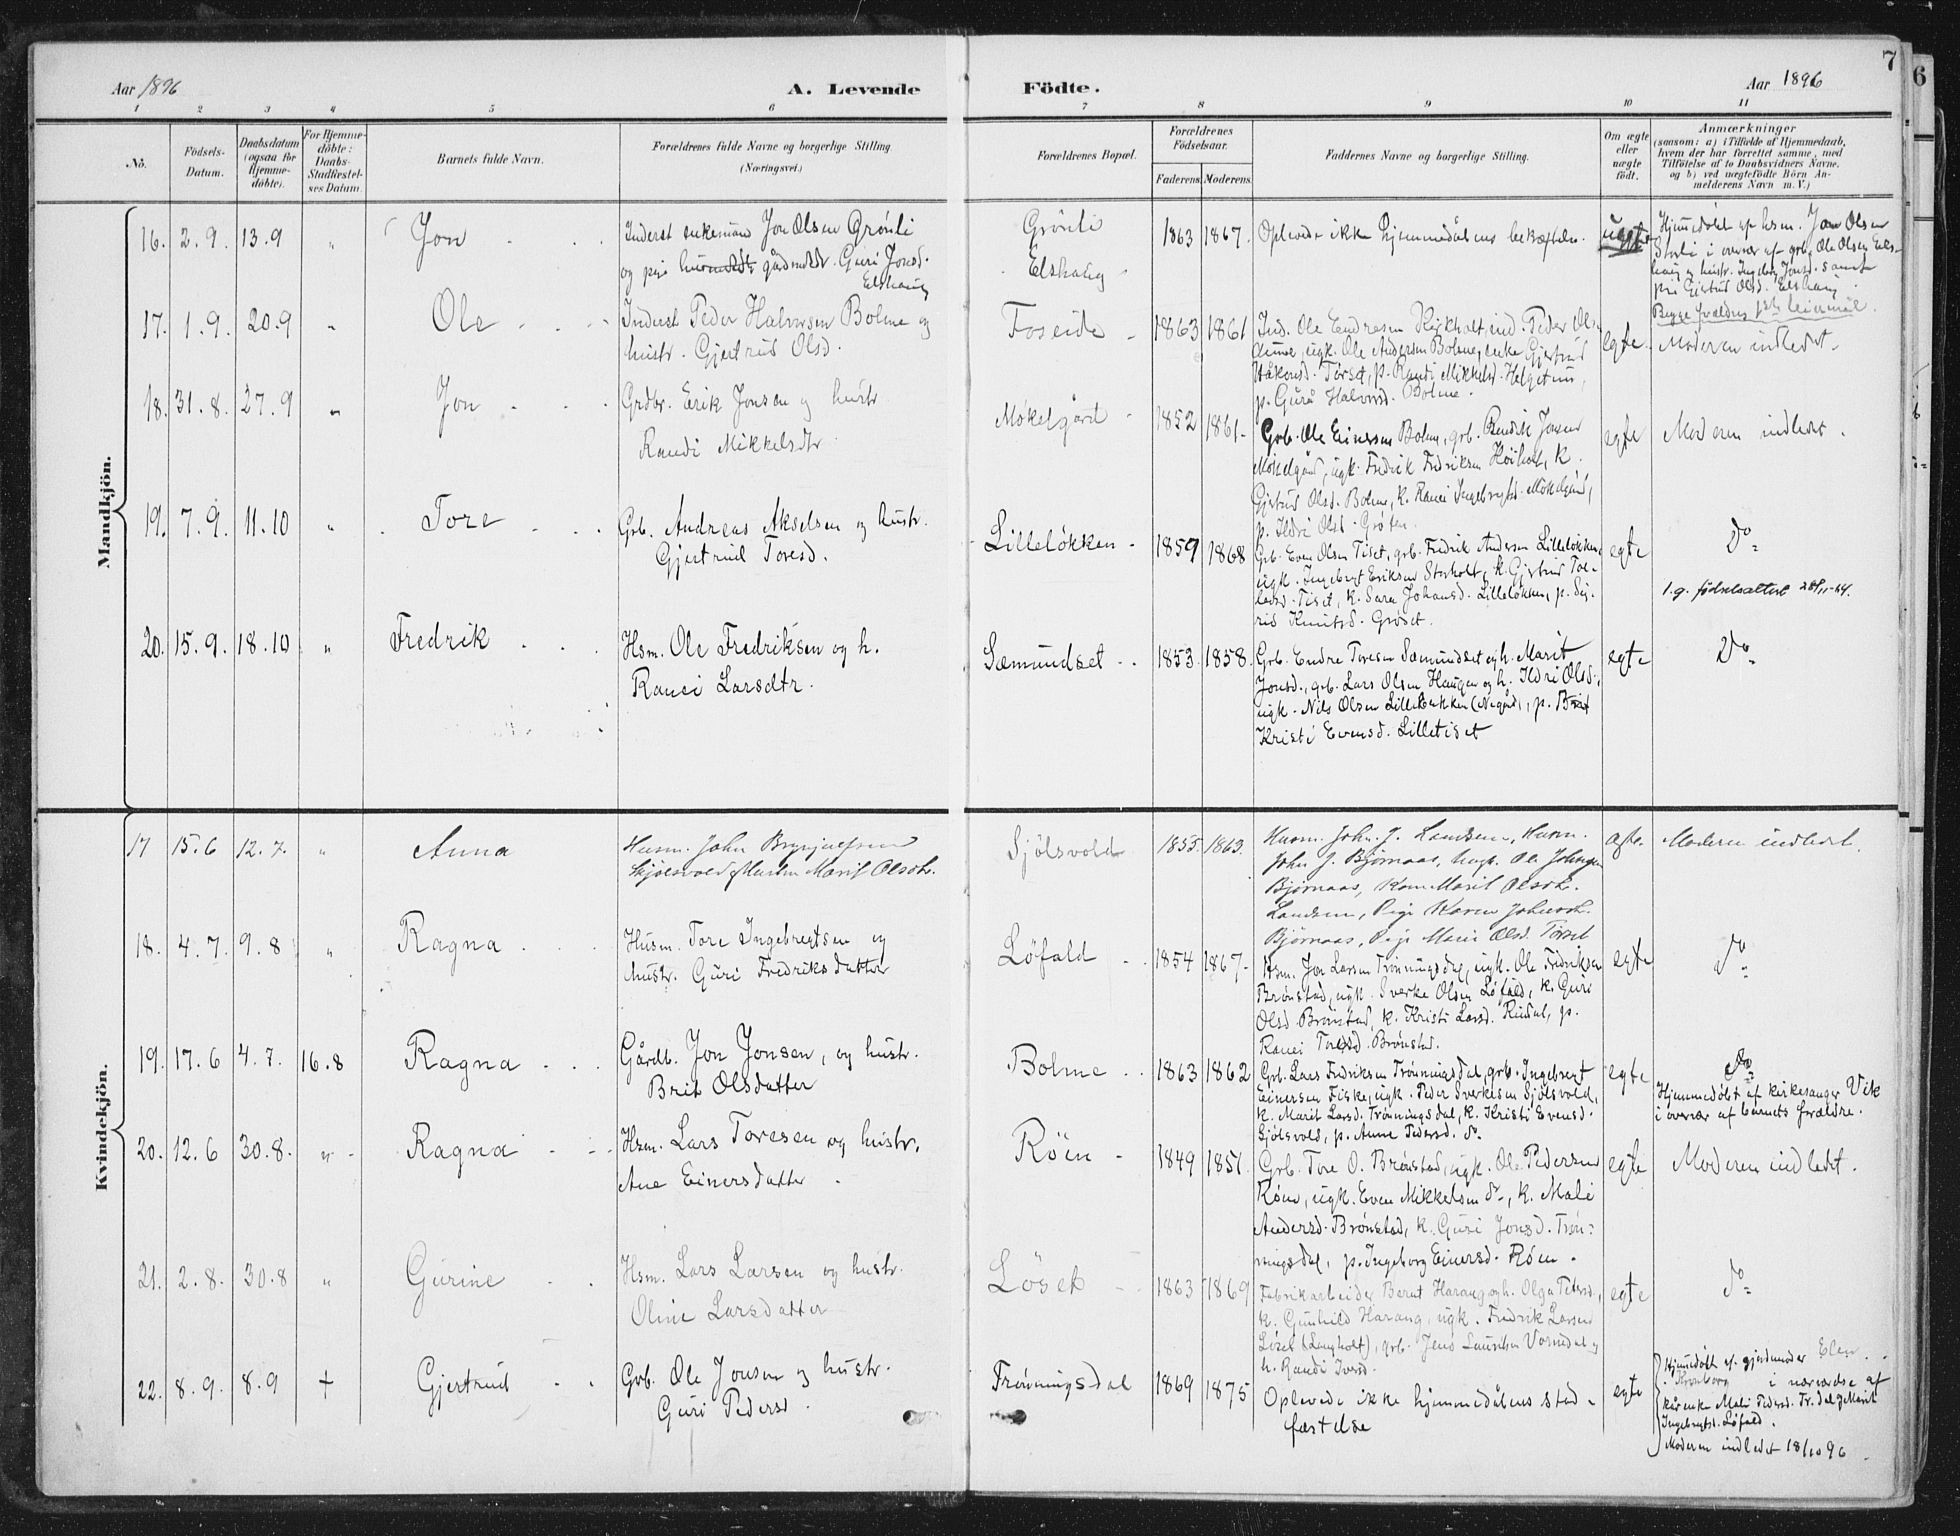 Aar 1896
A. Levende
Födte.
Aar 1896
7
6
1 2 3 4 5 6 7 8 9 10 11
No.
Födsels-Datum.
Daabsdatum (ogsaa for Hjemmedöbte).
For Hjemmedöbte: Daabs-Stadfæstelses Datum.
Barnets fulde Navn.
Forældrenes fulde Navne og borgerlige Stilling (Næringsvei.)
Forældrenes Bopæl.
Forældrenes Födselsaar.
Faderens Moderens
Faddernes Navne og borgerlige Stilling.
Om ægte eller uægte födt.
Anmærkninger
(saasom: a) i Tilfælde af Hjemmedaab, hvem der har forrettet samme, med Tilföielse af to Daabsvidners Navne. og b) ved uægtefödte Börn Anmelderens Navn m. V.)
Mandkjön.
16. 2.9. 13.9 " Jon
Inderst enkemand Jon Olsen Grönli
og pige gårdmdtr. Guri Jonsd.
Elshaug
Grönli
Elshaug
1863 1867.
Oplevede ikke hjemmedåbens bekræftelse.
uegte
Hjemmedöbt af hsm. Jon Olsen
Storli i overvær af grb. Ole Olsen Els-
haug og hustr. Ingeborg Jonsd. samt
pige Gjertrud Olsd. Elshaug.
Begge foreldres 1ste leiermål.
17. 1.9. 20.9 " Ole
Inderst Peder Halvorsen Bolme og
hustr. Gjertrud Olsd.
Foseide
1863 1861
Ind. Ole Endresen Kirkholt, ind. Peder Ols.
ugk. Ole Andersen Bolme, enke Gjertrud
Håkonsd. Törset, p. Randi Mikkelsd. Helgetun,
p. Gurå Halvorsd. Bolme.
egte.
Moderen indledet.
18. 31.8. 27.9 " Jon
Grdbr. Erik Jonsen og hustr
Randi Mikkelsdtr
Mökelgård
1852 1861.
Grb. Ole Einersen Bolme, grb. Rendik Jonsen
Mökelgård, ugk. Fredrik Fredriksen Höiholt, k.
Gjertrud Olsd. Bolme, k. Ranei Ingebrigtsd. Mökelgård,
p. Ildri Olsd. Gröten.
egte
Moderen indledet.
19. 7.9. 11.10 " Tore
Grb. Andreas Akselsen og hustr.
Gjertrud Toresd.
Lilleløkken
1859 1868
Grb. Even Olsen Tiset, grb. Fredrik Andersen Lilleløkken,
ugk. Ingebrigt Eriksen Storholt, k. Gjertrud Tor-
leivsd. Tiset, k. Sara Johansd. Lilleløkken, p. Sig-
rid Knutsd. Gröset.
egte
Do
1.g. fødselsattest 28/11-54.
20. 15.9. 18.10 " Fredrik
Hsm. Ole Fredriksen og h.
Ranei Larsdtr.
Sæmundset
1853. 1858.
Grb. Endre Toresen Sæmundset og h. Marit
Jonsd., grb. Lars Olsen Haugen og h. Ildri Olsd.,
ugk. Nils Olsen Lilleløkken (Negård), p. Brit
Kristi Evensd. Lilletiset
egte
Do
Kvindekjön.
17 15.6 12.7. " Anna
Husm. John Brynjulfsen
Skjölsvold & Hustru Marit Olsdtr.
Sjölsvold
1855. 1863.
Husm. John J. Landsem, Husm.
John J. Björnaas, Ungk. Ole Johnsen
Björnaas, Kone Marit Olsdtr.
Landsem, Pige Karen Johnsdtr.
Björnaas, Pige Marie Olsd. Törset
ægte.
Moderen indledt.
18. 4.7. 9.8 " Ragna
Husm. Tore Ingebregtsen og
hustr. Guri Fredriksdatter
Löfald
1854 1867.
Hsm. Jon Larsen Trönningsdal, ugk. Ole Fredriksen
Brönstad, ugk. Sverke Olsen Löfald, k. Guri
Olsd. Brönstad, k. Kristi Larsd. Rindal, p.
Ranei Toresd. Brönstad.
egte
Do
19. 17.6 4.7. 16.8 Ragna
Gårdb. Jon Jonsen, og hustr.
Brit Olsdatter
Bolme
1863 1862
Grb. Lars Fredriksen Trönningsdal, grb. Ingebrigt
Einersen Fiske, ugk. Peder Sverkesen Sjölsvold,
k. Marit Larsd. Trönningsdal, k. Kristi Evensd.
Sjölsvold, p. Anne Pedersd. do.
egte
Do
Hjemmedöbt af kirkesanger Vik
i overvær af barnets forældre.
20. 12.6 30.8. " Ragna
Hsm. Lars Toresen og hustr.
Ane Einersdatter
Röen
1849 1851.
Grb. Tore O. Brönstad, ugk. Ole Pedersen
Röen, ugk. Even Mikkelsen do, k. Mali
Andersd. Brönstad, k. Guri Jonsd. Trön-
ningsdal, p. Ingeborg Einersd. Röen.
egte
Moderen indledet.
21. 2.8. 30.8 " Gurine
Hsm. Lars Larsen og hustr.
Oline Larsdatter
Löset
1863 1869
Fabrikarbeider Bernt Harang og h. Olga Petersd.,
k. Gunhild Harang, ugk. Fredrik Larsen
Löset (Langholt), grb. Jens Laurits Vormdal og
h. Randi Iversd.
egte
Do
22. 8.9. 8.9 + Gjertrud
Grb. Ole Jonsen og hustr.
Guri Pedersd.
Trönningsdal
1869 1875
Oplevede ikke hjemmedåbens stad-
fæstelse
egte
Hjemmedöbt af gjordmoder Elen
Kronborg i nærværelse af
kårenke Mali Pedersd. Tr.dal & Marit
Ingebrigtsd. Löfald.
Moderen indledet 18/10 96